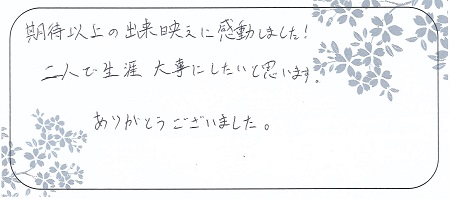 期待以上の出来映えに感動しました!
二人で生涯 大事にしたいと思います。
ありがとうございました。